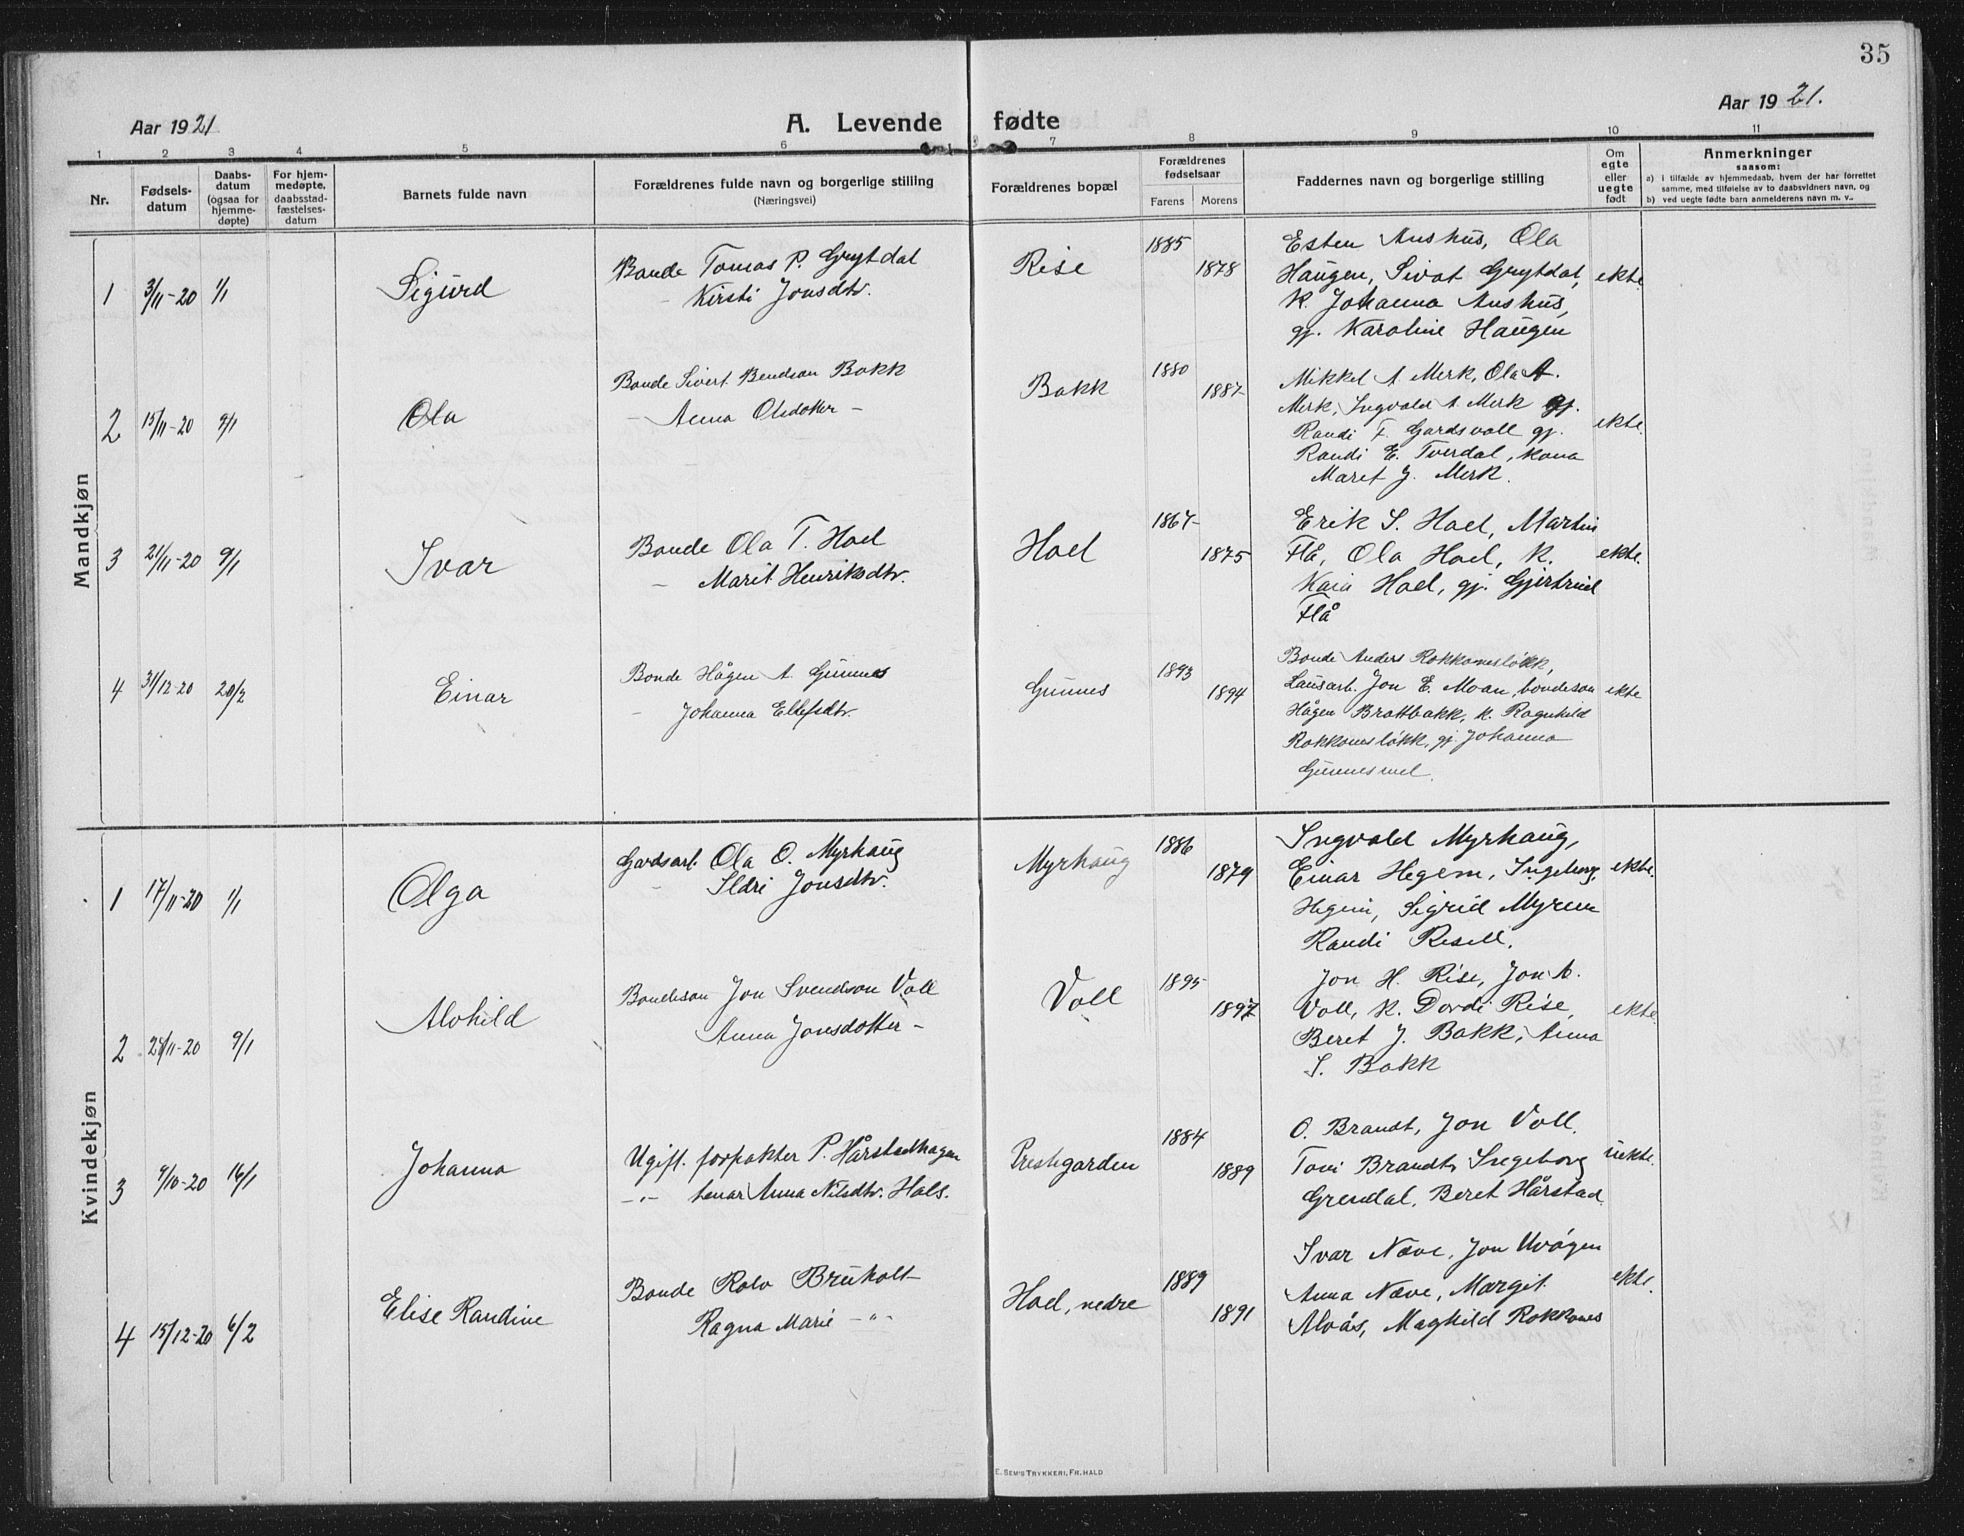 35
Aar 1921.
A. Levende fødte
Aar 1921.
1 2 3 4 5 6 7 8 9 10 11
Nr.
Fødsels-
datum
Daabs-
datum
(ogsaa for
hjemme-
døpte)
For hjem-
medøpte,
daabsstad-
fæstelses-
datum
Barnets fulde navn
Forældrenes fulde navn og borgerlige stilling
(Næringsvei)
Forældrenes bopæl
Forældrenes
fødselsaar
Farens Morens
Faddernes navn og borgerlige stilling
Om
egte
eller
uegte
født
Anmerkninger
saasom:
a) i tilfælde av hjemmedaab, hvem der har forrettet
samme, med tilføielse av to daabsvidners navn, og
b) ved uegte fødte barn anmelderens navn m. v.
Mandkjøn
1 3/11-20 1/1 Sigurd
Bonde Tomas P. Grytdal
- Kirsti Jonsdtr.
Rise 1885 1878
Esten Aushus, Ola
Haugen, Sivat Grytdal,
k. Johanna Aushus,
gj. Karoline Haugen
ekte
2 15/11-20 9/1 Ola
Bonde Sivert Bendson Bakk
- Anna Olsdotter -
Bakk 1880 1887
Mikkel A Merk, Ola A.
Merk, Ingvald A. Merk gj.
Randi F. Gardsvoll gj.
Randi E. Tverdal, kona
Maret J. Merk.
ekte.
3 21/11-20 9/1 Ivar
Bonde Ola T. Hoel
- Marit Henriksdtr.
Hoel 1867 1875
Erik S. Hoel, Martin
Flå, Ola Hoel, k.
Kaia Hoel, gj. Gjertrud
Flå
ekte.
4 31/12-20 20/2 Einar
Bonde Hågen A. Gunnes
- Johanna Ellefsdtr.
Gunnes 1893 1894
Bonde Anders Rokkonesløkk,
Lausarb. Jon E. Moan, bondeson
Hågen Brattbakk, k. Ragnhild
Rokkonesløkk, gj. Johanna
Gunnesmel.
ekte
Kvindekjøn
1 17/11-20 1/1 Olga
Gardsarb. Ola O. Myrhaug
- Sldri Jonsdtr.
Myrhaug 1886 1879
Ingvald Myrhaug,
Einar Hegem, Ingeborg
Hegem, Sigrid Myren
Randi Risell.
ekte.
2 9/1 Alvhild
Bondeson Jon Svendson Voll
Anna Jonsdotter -
Voll 1895 1897
Jon H. Rise, Jon A.
Voll, k. Dordi Rise,
Beret J. Bakk, Anna
S. Bakk
ekte.
3 9/10-20 16/1 Johanna
Ugift. forpakter P. Hårstadhagen
-"- tenar Anna Nilsdtr. Hals.
Prestegarden 1884 1889
O. Brandt, Jon Voll.
Toni Brandt, Ingeborg
Grendal, Beret Hårstad.
uekte.
4 15/12-20 6/2 Elise Randine
Bonde Rolv Bruholt
Ragna Marie -"-
Hoel, nedre 1889 1891
Ivar Næve, Jon Uvågen
Anna Næve, Margit
Alvås, Maghild Rokkones
ekte.
E. SEM'S TRYKKERI, FR. HALD